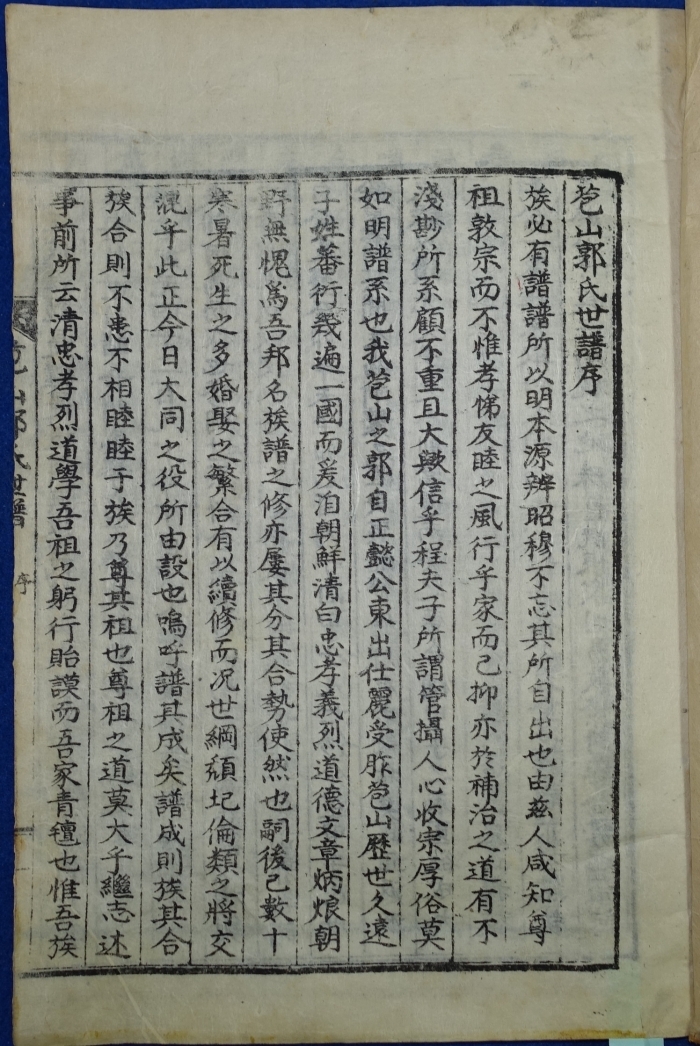 苞山郭氏世譜序
族必有譜譜所以明本源辨昭穆不忘其所自出也由玆人咸知尊
祖敦宗而不惟孝悌友睦之風行乎家而已抑亦於補治之道有不
淺尠所系顧不重且大歟信乎程夫子所謂管攝人心收宗厚俗莫
如明譜系也我苞山之郭自正懿公東出仕麗受胙苞山歷世久遠
子姓蕃衍幾遍一國而爰洎朝鮮清白忠孝義烈道德文章炳烺朝
野無愧爲吾邦名族譜之修亦屢其分其合勢使然也嗣後已數十
寒暑死生之多婚娶之繁合有以續修而况世綱頹圮倫類之將交
混乎此正今日大同之役所由設也嗚呼譜其成矣譜成則族其合
族合則不患不相睦睦于族乃尊其祖也尊祖之道莫大乎繼志述
事前所云清忠孝烈道學吾祖之躬行貽謨而吾家青氊也惟吾族
苞山郭氏世譜
序